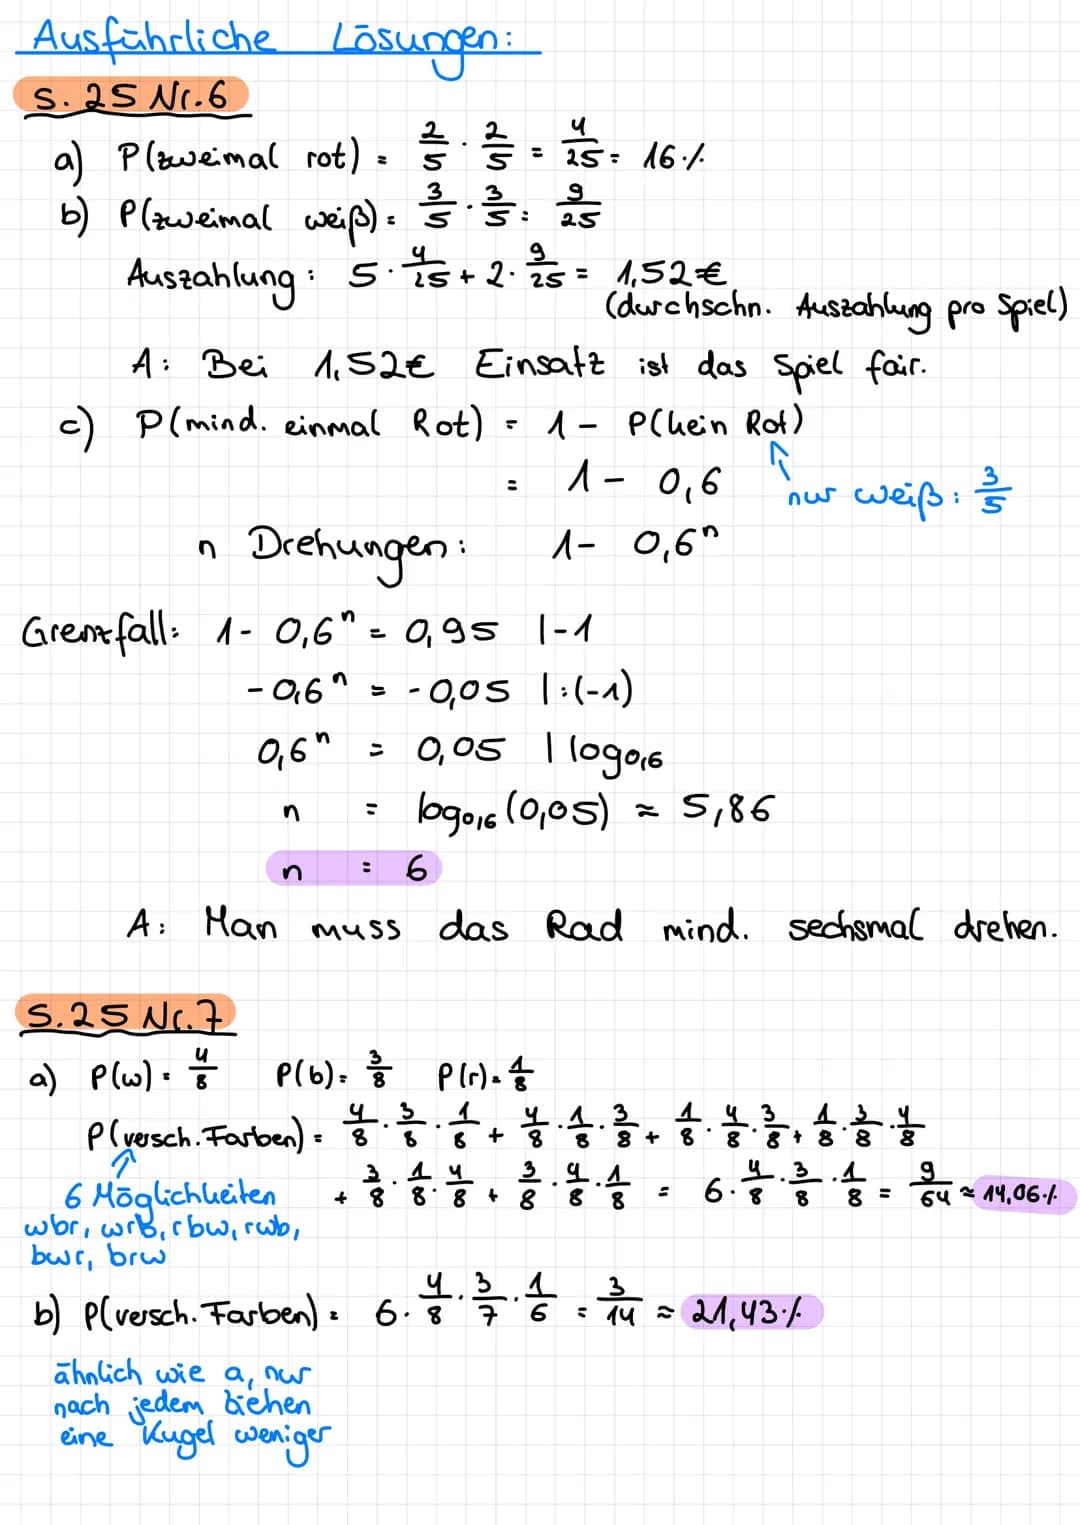 Ausführliche Lösungen:
S. 25 Nr. 6
a) P(zweimal rot) = 2/5 · 2/5 = 4/25 = 16%
b) P(zweimal weiß) = 3/5 · 3/5 = 9/25
Auszahlung: 5 · 4/25 + 2 · 9/25 = 1,52€
(durchschn. Auszahlung pro Spiel)
A: Bei 1,52€ Einsatz ist das Spiel fair.
c) P(mind. einmal Rot) = 1 - P(kein Rot)
= 1 - 0,6
nur weiß: 3/5
n Drehungen: 1 - 0,6ⁿ
Grenzfall: 1 - 0,6ⁿ = 0,95 |-1
-0,6ⁿ = -0,05 |:(-1)
0,6ⁿ = 0,05 | log₀,₆
n = log₀,₆ (0,05) ≈ 5,86
n = 6
A: Man muss das Rad mind. sechsmal drehen.
S. 25 Nr. 7
a) P(w) = 4/8 P(b) = 3/8 P(r) = 1/8
P(versch. Farben) = 4/8 · 3/8 · 1/8 + 4/8 · 1/8 · 3/8 + 1/8 · 4/8 · 3/8 + 1/8 · 3/8 · 4/8
+ 3/8 · 1/8 · 4/8 + 3/8 · 4/8 · 1/8 = 6 · 4/8 · 3/8 · 1/8 = 9/64 ≈ 14,06%
6 Möglichkeiten
wbr, wrb, rbw, rwb,
bwr, brw
b) P(versch. Farben) = 6 · 4/8 · 3/7 · 1/6 = 3/14 ≈ 21,43%
ähnlich wie a, nur
nach jedem ziehen
eine Kugel weniger